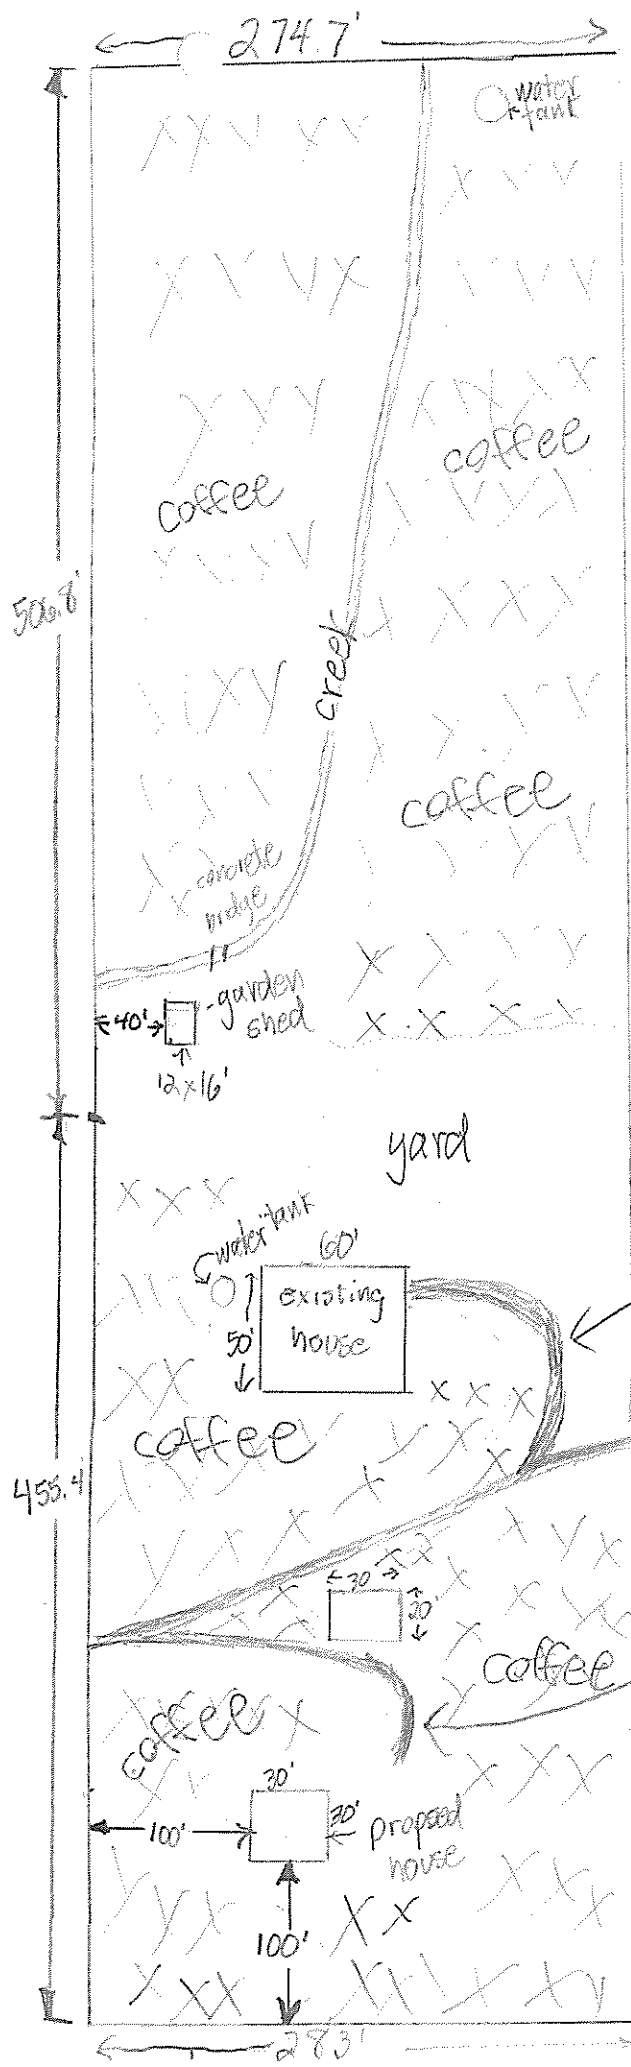 274.7'
water
tank
coffee
coffee
506.8'
creek
coffee
concrete
bridge
garden
shed
40'
12x16'
yard
water tank
60'
existing
house
50'
coffee
455.4'
30'
20'
coffee
coffee
30'
30'
100'
propsed
house
100'
283'